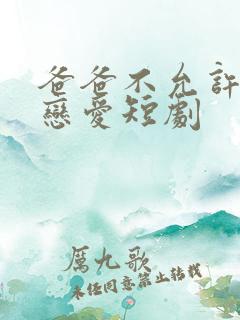 爸爸不允許
戀愛短劇
厲九歌
未經同意禁止轉載